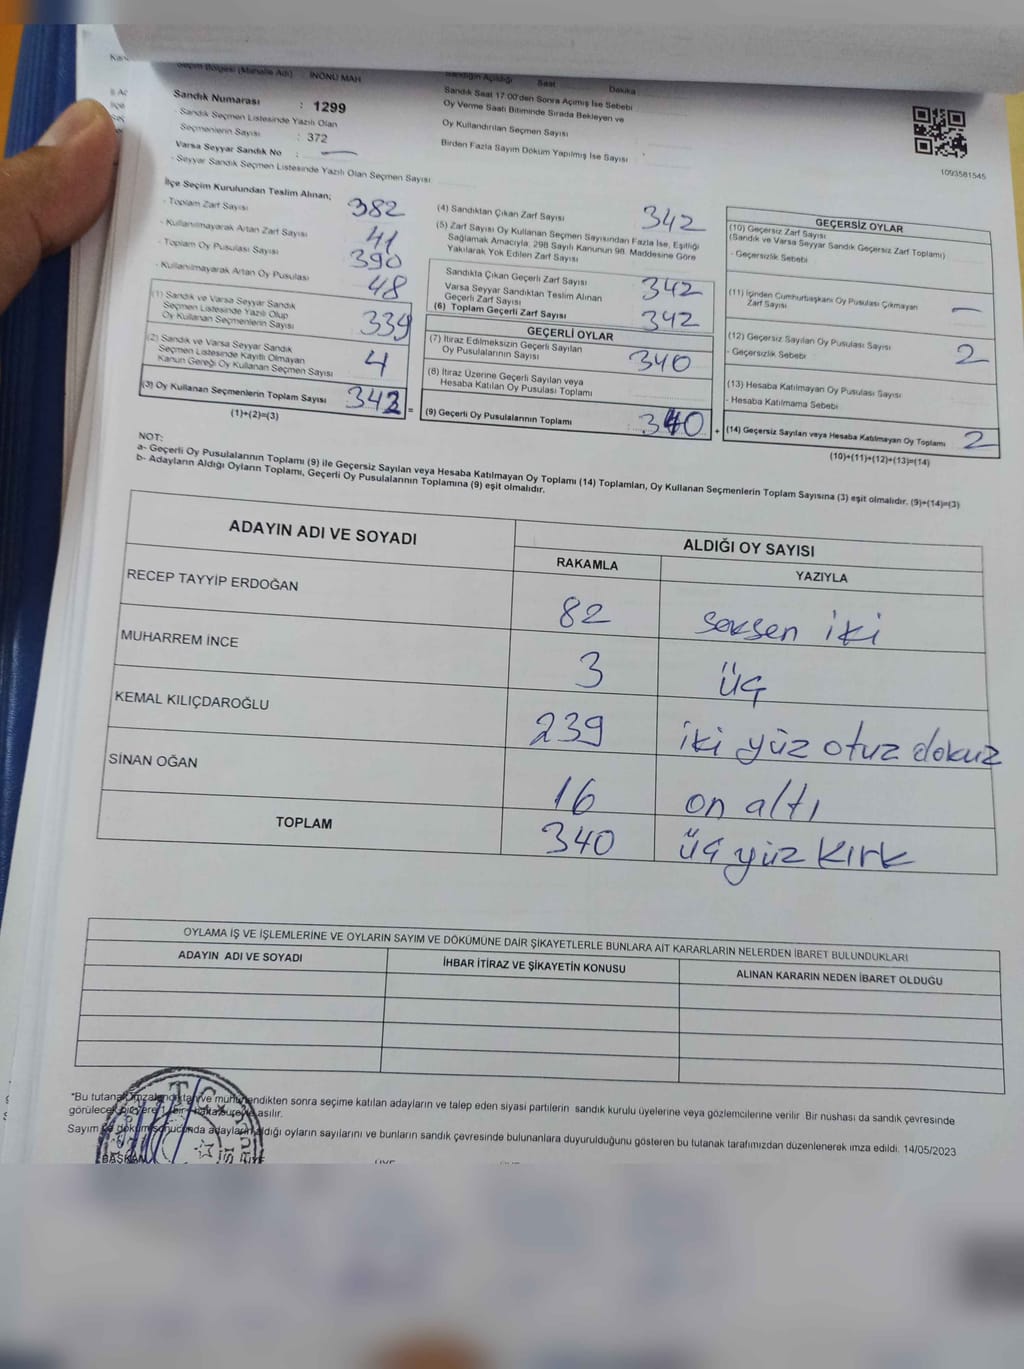 Seçim Bölgesi (Mahalle Adı) : İNÖNÜ MAH
Sandık Numarası : 1299
- Sandık Seçmen Listesinde Yazılı Olan
Seçmenlerin Sayısı : 372
Varsa Seyyar Sandık No : —
- Seyyar Sandık Seçmen Listesinde Yazılı Olan Seçmen Sayısı
Sandığın Açıldığı Saat Dakika
Sandık Saat 17:00'den Sonra Açımış İse Sebebi
Oy Verme Saati Bitiminde Sırada Bekleyen ve
Oy Kullandırılan Seçmen Sayısı
Birden Fazla Sayım Döküm Yapılmış İse Sayısı
1093581545
İlçe Seçim Kurulundan Teslim Alınan;
- Toplam Zarf Sayısı 382
- Kullanılmayarak Artan Zarf Sayısı 41
- Toplam Oy Pusulası Sayısı 390
- Kullanılmayarak Artan Oy Pusulası 48
(1) Sandık ve Varsa Seyyar Sandık
Seçmen Listesinde Yazılı Olup
Oy Kullanan Seçmenlerin Sayısı 339
(2) Sandık ve Varsa Seyyar Sandık
Seçmen Listesinde Kayıtlı Olmayan
Kanun Gereği Oy Kullanan Seçmen Sayısı 4
(3) Oy Kullanan Seçmenlerin Toplam Sayısı 342 =
(1)+(2)=(3)
(4) Sandıktan Çıkan Zarf Sayısı 342
(5) Zarf Sayısı Oy Kullanan Seçmen Sayısından Fazla İse, Eşitliği
Sağlamak Amacıyla, 298 Sayılı Kanunun 98. Maddesine Göre
Yakılarak Yok Edilen Zarf Sayısı
Sandıkta Çıkan Geçerli Zarf Sayısı 342
Varsa Seyyar Sandıktan Teslim Alınan
Geçerli Zarf Sayısı
(6) Toplam Geçerli Zarf Sayısı 342
GEÇERLİ OYLAR
(7) İtiraz Edilmeksizin Geçerli Sayılan
Oy Pusulalarının Sayısı 340
(8) İtiraz Üzerine Geçerli Sayılan veya
Hesaba Katılan Oy Pusulası Toplamı
(9) Geçerli Oy Pusulalarının Toplamı 340 +
GEÇERSİZ OYLAR
(10) Geçersiz Zarf Sayısı
(Sandık ve Varsa Seyyar Sandık Geçersiz Zarf Toplamı)
- Geçersizlik Sebebi
(11) İçinden Cumhurbaşkanı Oy Pusulası Çıkmayan
Zarf Sayısı —
(12) Geçersiz Sayılan Oy Pusulası Sayısı 2
- Geçersizlik Sebebi
(13) Hesaba Katılmayan Oy Pusulası Sayısı
- Hesaba Katılmama Sebebi
(14) Geçersiz Sayılan veya Hesaba Katılmayan Oy Toplamı 2
(10)+(11)+(12)+(13)=(14)
NOT:
a- Geçerli Oy Pusulalarının Toplamı (9) ile Geçersiz Sayılan veya Hesaba Katılmayan Oy Toplamı (14) Toplamları, Oy Kullanan Seçmenlerin Toplam Sayısına (3) eşit olmalıdır. (9)+(14)=(3)
b- Adayların Aldığı Oyların Toplamı, Geçerli Oy Pusulalarının Toplamına (9) eşit olmalıdır.
ADAYIN ADI VE SOYADI ALDIĞI OY SAYISI
RAKAMLA YAZIYLA
RECEP TAYYİP ERDOĞAN 82 seksen iki
MUHARREM İNCE 3 üç
KEMAL KILIÇDAROĞLU 239 iki yüz otuz dokuz
SİNAN OĞAN 16 on altı
TOPLAM 340 üç yüz kırk
OYLAMA İŞ VE İŞLEMLERİNE VE OYLARIN SAYIM VE DÖKÜMÜNE DAİR ŞİKAYETLERLE BUNLARA AİT KARARLARIN NELERDEN İBARET BULUNDUKLARI
ADAYIN ADI VE SOYADI İHBAR İTİRAZ VE ŞİKAYETİN KONUSU ALINAN KARARIN NEDEN İBARET OLDUĞU
*Bu tutanak imzalandıktan ve mühürlendikten sonra seçime katılan adayların ve talep eden siyasi partilerin sandık kurulu üyelerine veya gözlemcilerine verilir Bir nüshası da sandık çevresinde
görülecek bir yere 1 (bir) hafta süreyle asılır.
Sayım ve döküm sonucunda adayların aldığı oyların sayılarını ve bunların sandık çevresinde bulunanlara duyurulduğunu gösteren bu tutanak tarafımızdan düzenlenerek imza edildi. 14/05/2023
BAŞKAN